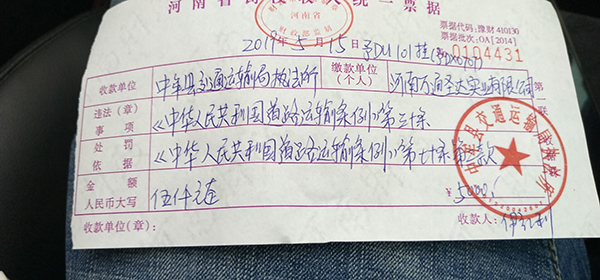 河南省 收入统一票据
河南省
财政部监制
票据代码:豫财 410130
票据批次:OA[2014]
2019年5月15日 豫DU101挂
0104431
收款单位 中牟县交通运输局执法所 缴款单位(个人) 河南万通圣达实业有限公司
违法(章)事项 《中华人民共和国道路运输条例》第三十条
处罚依据 《中华人民共和国道路运输条例》第七十条第二款
金额人民币大写 伍仟元 ¥5000.
收款单位(章): 收款人:
第
中牟县交通运输局执法所